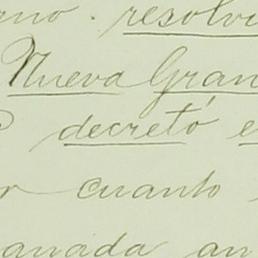 resolvi
Nueva Gran
decretó e
r cuanto
anada an